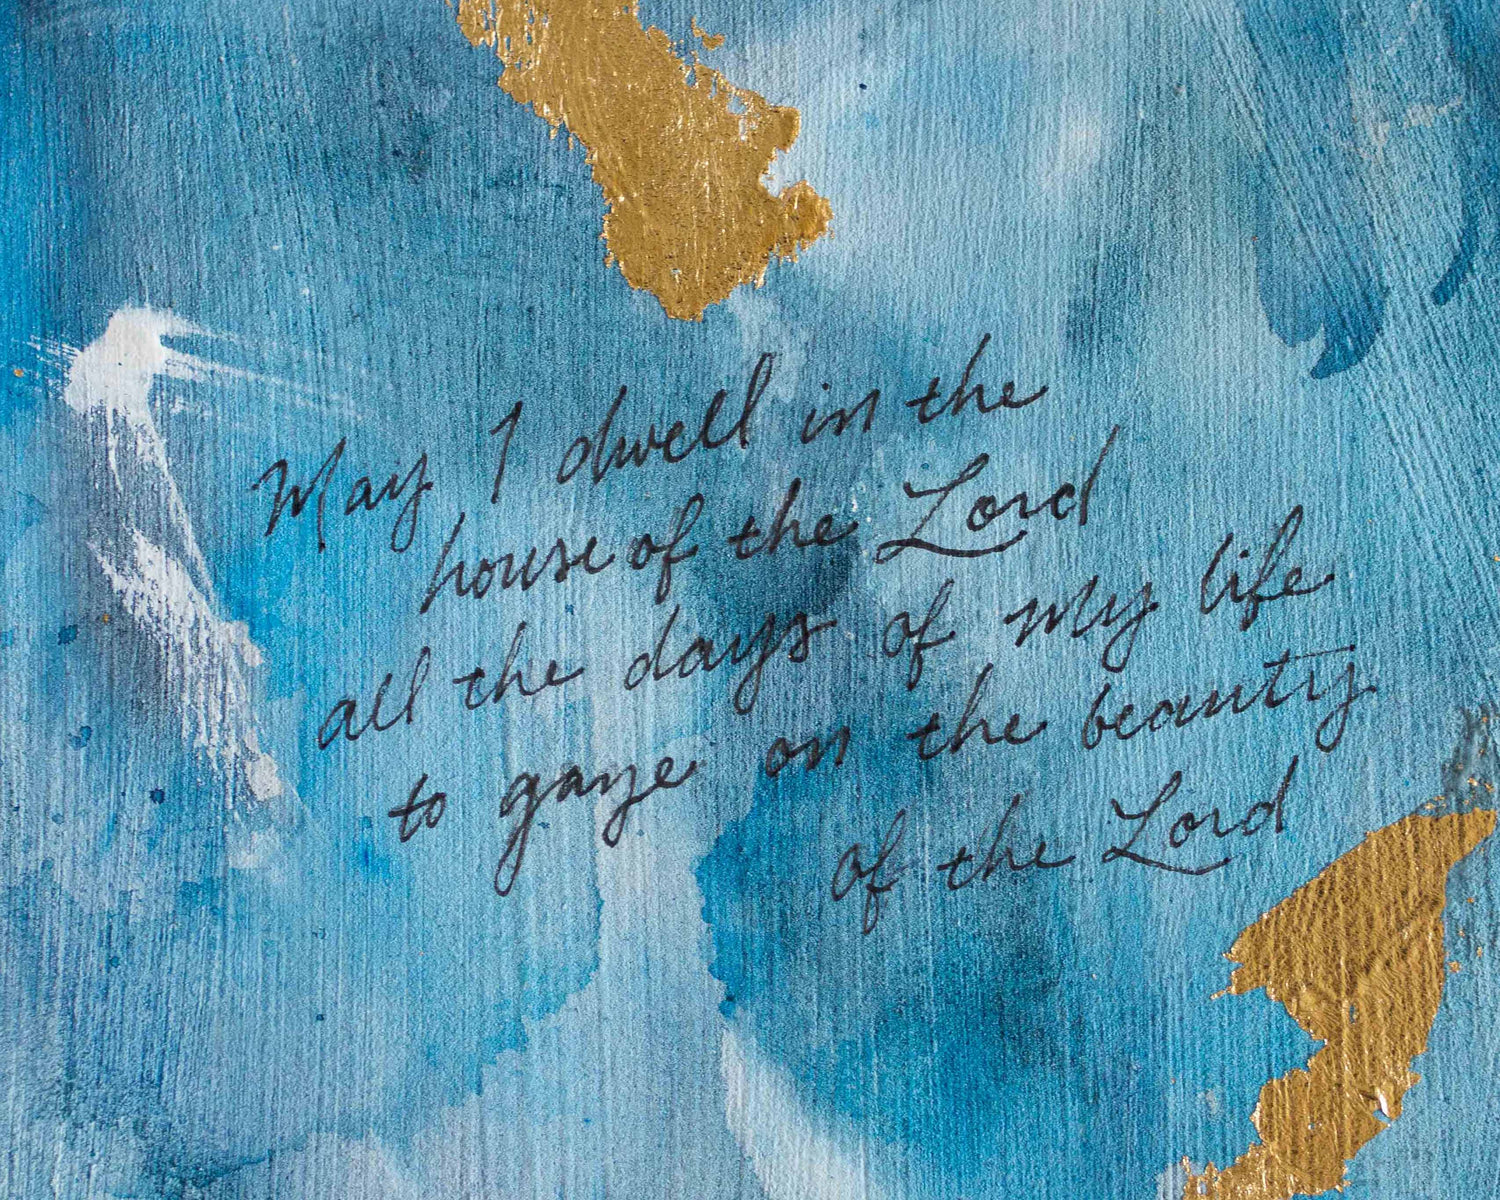 May I dwell in the
house of the Lord
all the days of my life
to gaze on the beauty
of the Lord